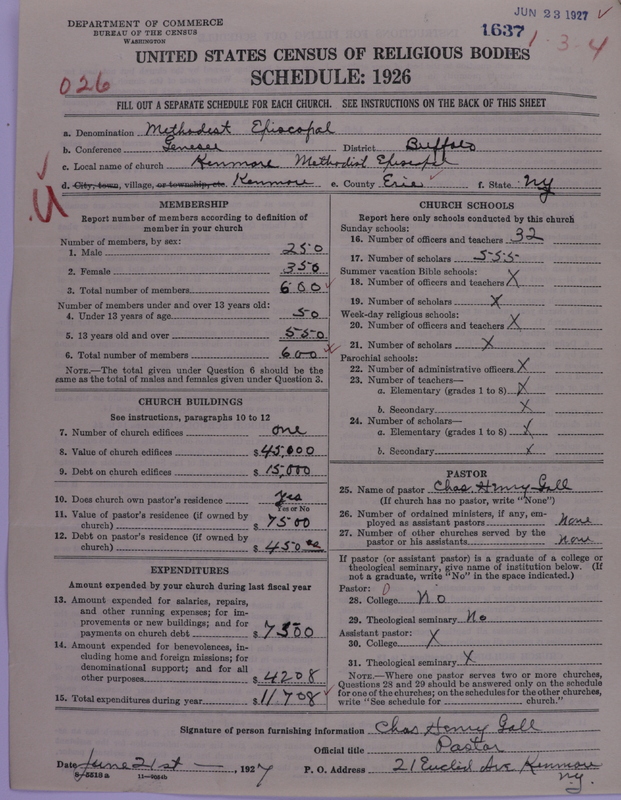 DEPARTMENT OF COMMERCE
BUREAU OF THE CENSUS
WASHINGTON
JUN 23 1927
1637
1-3-4
026
UNITED STATES CENSUS OF RELIGIOUS BODIES
SCHEDULE: 1926
FILL OUT A SEPARATE SCHEDULE FOR EACH CHURCH. SEE INSTRUCTIONS ON THE BACK OF THIS SHEET
a. Denomination Methodist Episcopal
b. Conference Genesee District Buffalo
c. Local name of church Kenmore Methodist Episcopal
d. City, town, village, or township, etc. Kenmore e. County Erie f. State NY
MEMBERSHIP
Report number of members according to definition of member in your church
Number of members, by sex:
1. Male 250
2. Female 350
3. Total number of members 600
Number of members under and over 13 years old:
4. Under 13 years of age 50
5. 13 years old and over 550
6. Total number of members 600
NOTE.—The total given under Question 6 should be the same as the total of males and females given under Question 3.
CHURCH BUILDINGS
See instructions, paragraphs 10 to 12
7. Number of church edifices one
8. Value of church edifices $45,000
9. Debt on church edifices $15,000
10. Does church own pastor's residence yes
Yes or No
11. Value of pastor's residence (if owned by church) $7500
12. Debt on pastor's residence (if owned by church) $450
EXPENDITURES
Amount expended by your church during last fiscal year
13. Amount expended for salaries, repairs, and other running expenses; for improvements or new buildings; and for payments on church debt $7500
14. Amount expended for benevolences, including home and foreign missions; for denominational support; and for all other purposes $4208
15. Total expenditures during year $11708
CHURCH SCHOOLS
Report here only schools conducted by this church
Sunday schools:
16. Number of officers and teachers 32
17. Number of scholars 555
Summer vacation Bible schools:
18. Number of officers and teachers X
19. Number of scholars X
Week-day religious schools:
20. Number of officers and teachers X
21. Number of scholars X
Parochial schools:
22. Number of administrative officers X
23. Number of teachers—
a. Elementary (grades 1 to 8) X
b. Secondary X
24. Number of scholars—
a. Elementary (grades 1 to 8) X
b. Secondary X
PASTOR
25. Name of pastor Chas. Henry Gall
(If church has no pastor, write "None")
26. Number of ordained ministers, if any, employed as assistant pastors None
27. Number of other churches served by the pastor or his assistants None
If pastor (or assistant pastor) is a graduate of a college or theological seminary, give name of institution below. (If not a graduate, write "No" in the space indicated.)
Pastor: 0
28. College No
29. Theological seminary No
Assistant pastor:
30. College X
31. Theological seminary X
NOTE.—Where one pastor serves two or more churches, Questions 28 and 29 should be answered only on the schedule for one of the churches; on the schedules for the other churches, write "See schedule for church."
Signature of person furnishing information Chas Henry Gall
Official title Pastor
Date June 21st, 1927 P. O. Address 21 Euclid Ave Kenmore N.Y.
8-5518a 11-9084b